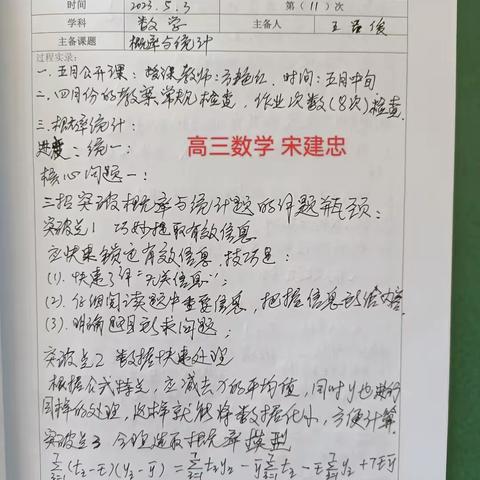 时间 2023.5.3 第（11）次
学科 数学 主备人 王 俊
主备课题 概率与统计
过程实录：
一.五月公开课：授课教师： 艳红. 时间：五月中旬
二.四月份的教案常规检查，作业次数(8次)检查.
三.概率统计：
进度：统一：
高三数学 宋建忠
核心问题一：
三招突破概率与统计题的解题瓶颈：
突破点1 巧妙提取有效信息
应快速锁定有效信息.技巧是：
(1).快速了解“无关信息”；
(2).仔细阅读题中重要信息，把握信息 内容
(3).明确题目所求问题；
突破点2 数据快速处理
根据公式特点，应减去x的平均值，同时y也进行
同样的处理，这样就能将数据化小，方便计算.
突破点3 合理选取概率模型